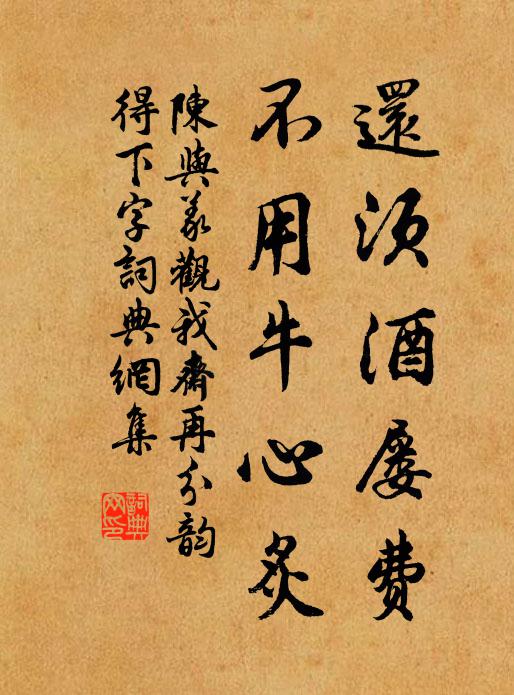 還須酒屡費
不用牛心炙
陳與義觀我齋再分韵
得下字詞典網集
詞典網印